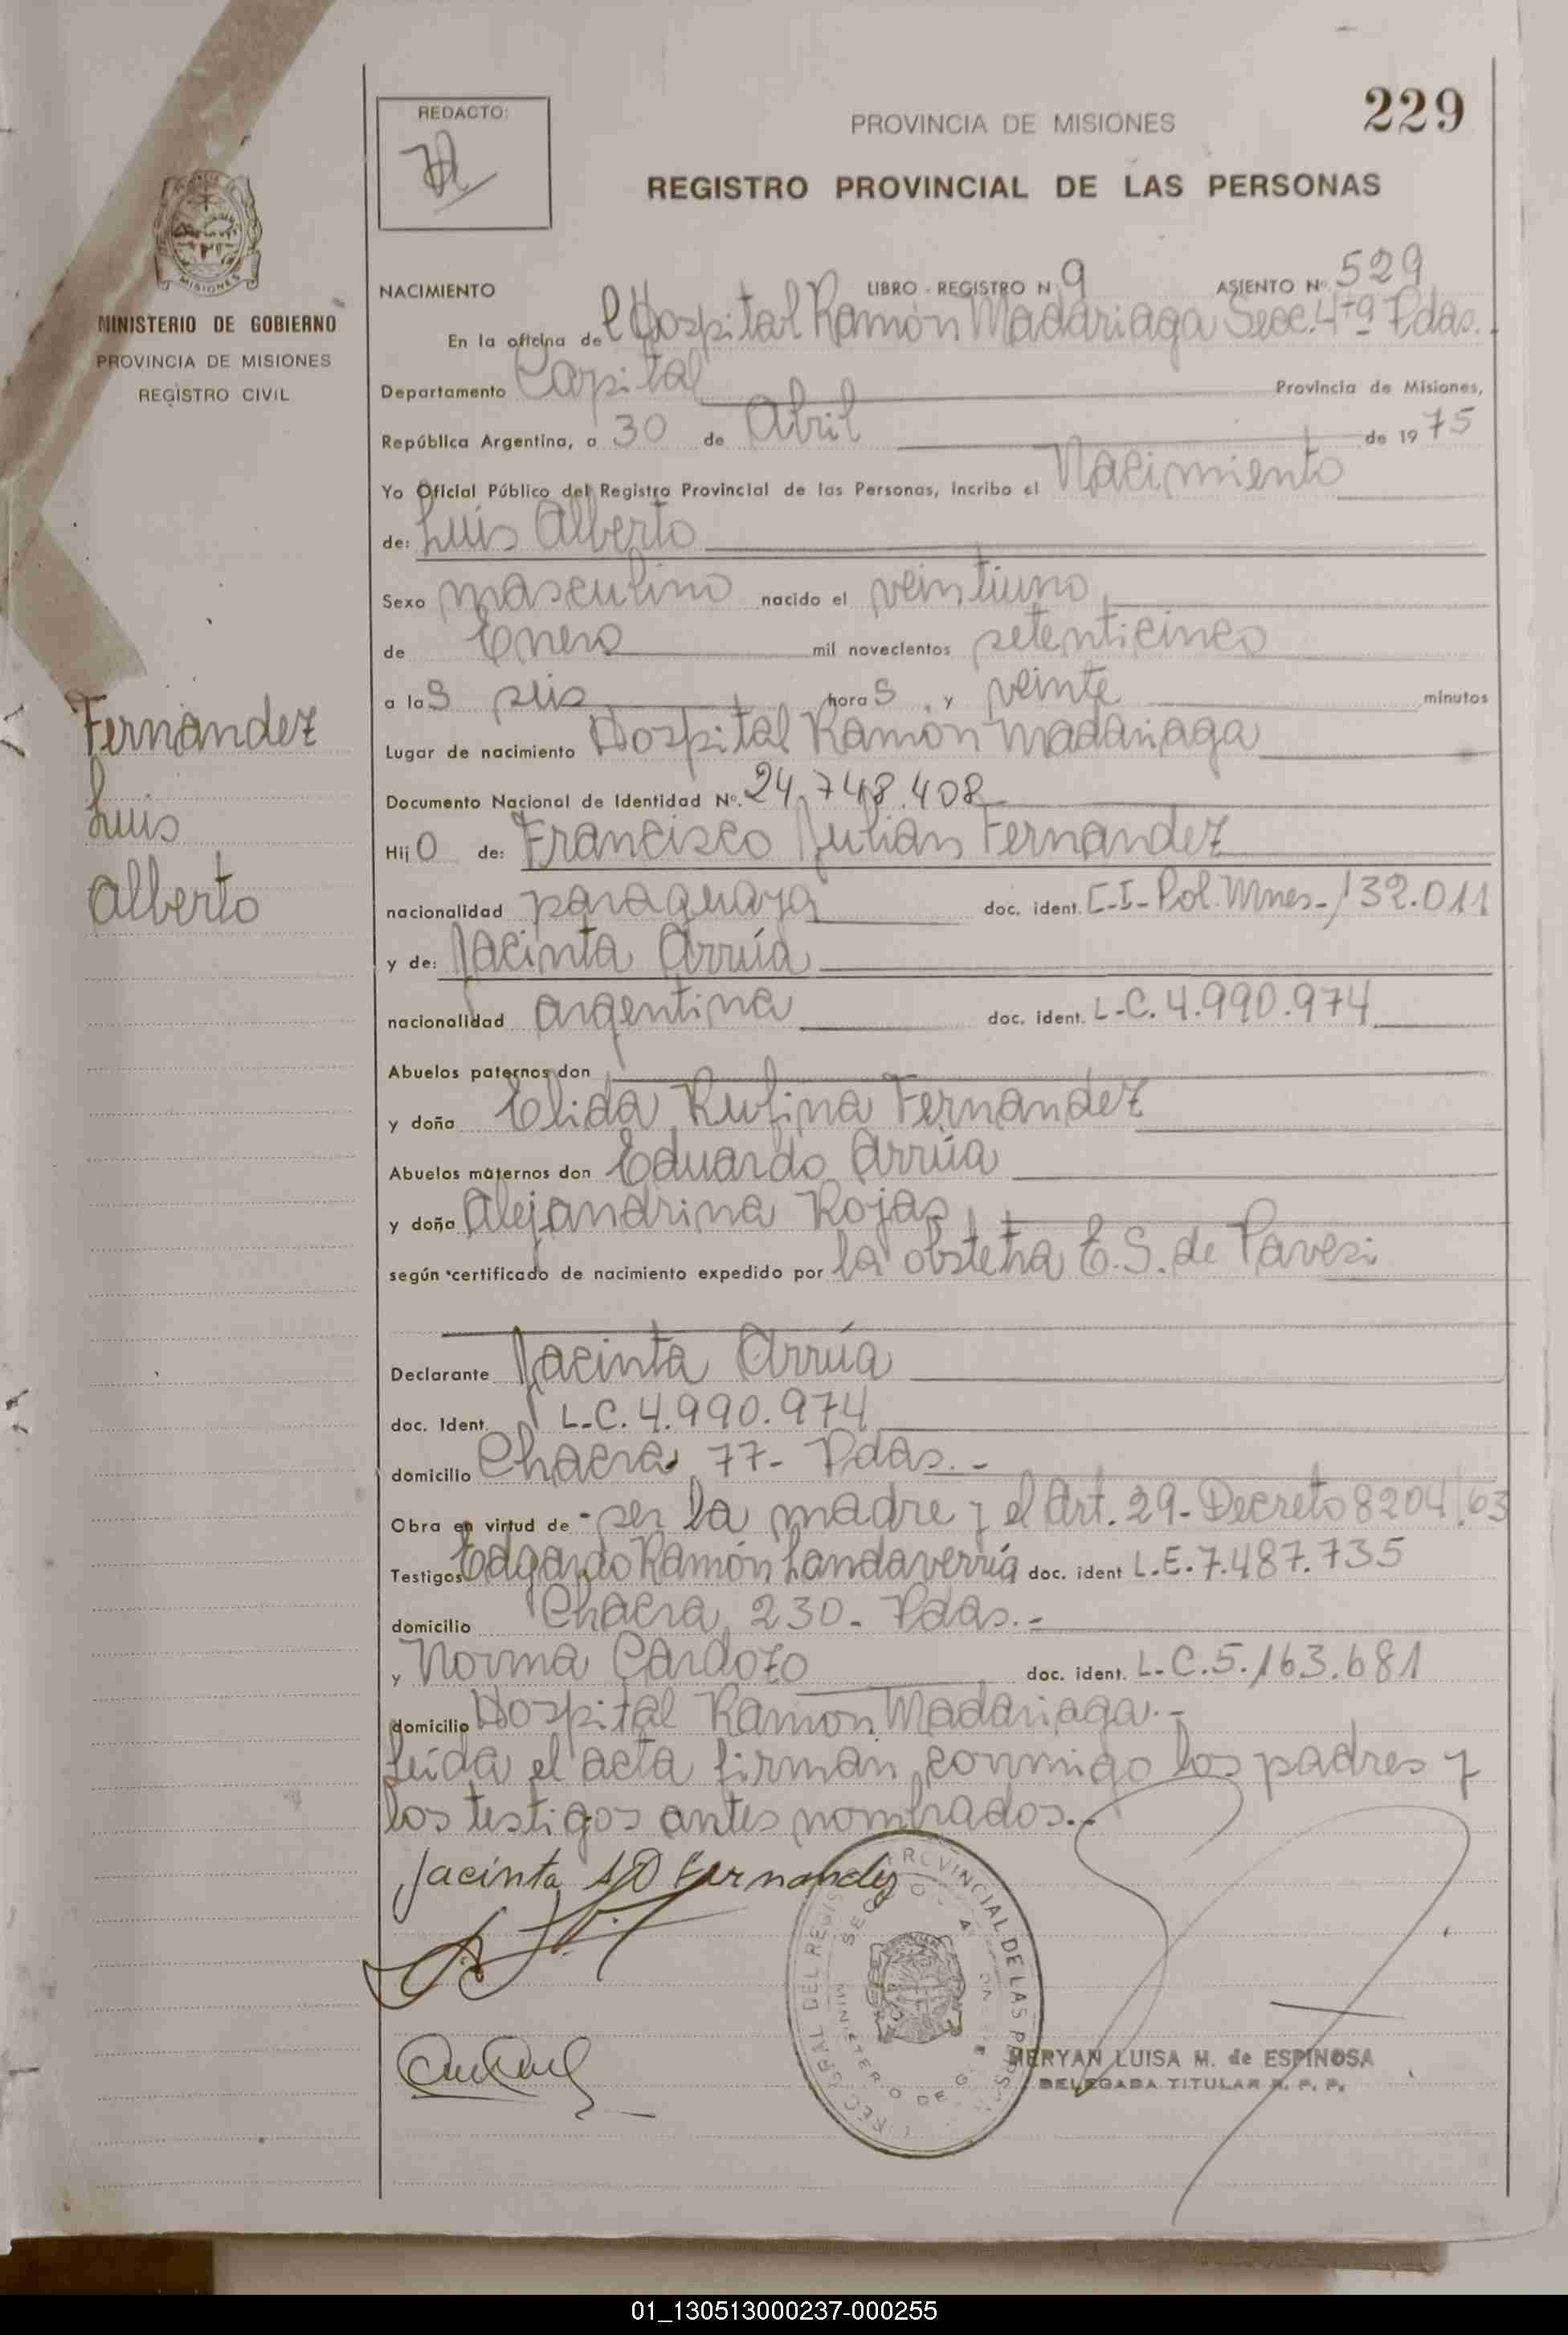 REDACTO:
PROVINCIA DE MISIONES
229
REGISTRO PROVINCIAL DE LAS PERSONAS
MISIONES
MINISTERIO DE GOBIERNO
PROVINCIA DE MISIONES
REGISTRO CIVIL
Fernandez
Luis
Alberto
NACIMIENTO LIBRO - REGISTRO N 9 ASIENTO Nº 529
En la oficina de l Hospital Ramón Madariaga Secc. 4ta Pdas.
Departamento Capital Provincia de Misiones,
República Argentina, a 30 de Abril de 1975
Yo Oficial Público del Registro Provincial de las Personas, incribo el Nacimiento
de: Luis Alberto
Sexo masculino nacido el veintiuno
de Enero mil novecientos setenticinco
a las seis horas, y veinte minutos
Lugar de nacimiento Hospital Ramón Madariaga
Documento Nacional de Identidad Nº. 24.748.408
Hijo de: Francisco Julian Fernandez
nacionalidad paraguaya doc. ident. C-I-Pol. Mnes-132.011
y de: Jacinta Arrúa
nacionalidad argentina doc. ident. L-C. 4.990.974
Abuelos paternos don
y doña Elida Rufina Fernandez
Abuelos maternos don Eduardo Arrúa
y doña Alejandrina Rojas
según certificado de nacimiento expedido por la obstetra E.S. de Pavesi
Declarante Jacinta Arrúa
doc. Ident. L-C. 4.990.974
domicilio Chacra 77- Pdas.-
Obra en virtud de - ser la madre y el Art. 29- Decreto 8204/63
Testigos Edgardo Ramón Landaverría doc. ident L.E. 7.487.735
domicilio Chacra 230- Pdas.-
y Norma Cardozo doc. ident. L-C. 5.163.681
domicilio Hospital Ramon Madariaga.-
Leída el acta firman conmigo los padres y
los testigos antes nombrados.-
Jacinta A D Fernandez
MERYAN LUISA M. de ESPINOSA
DELEGADA TITULAR R. P. P.
01_130513000237-000255